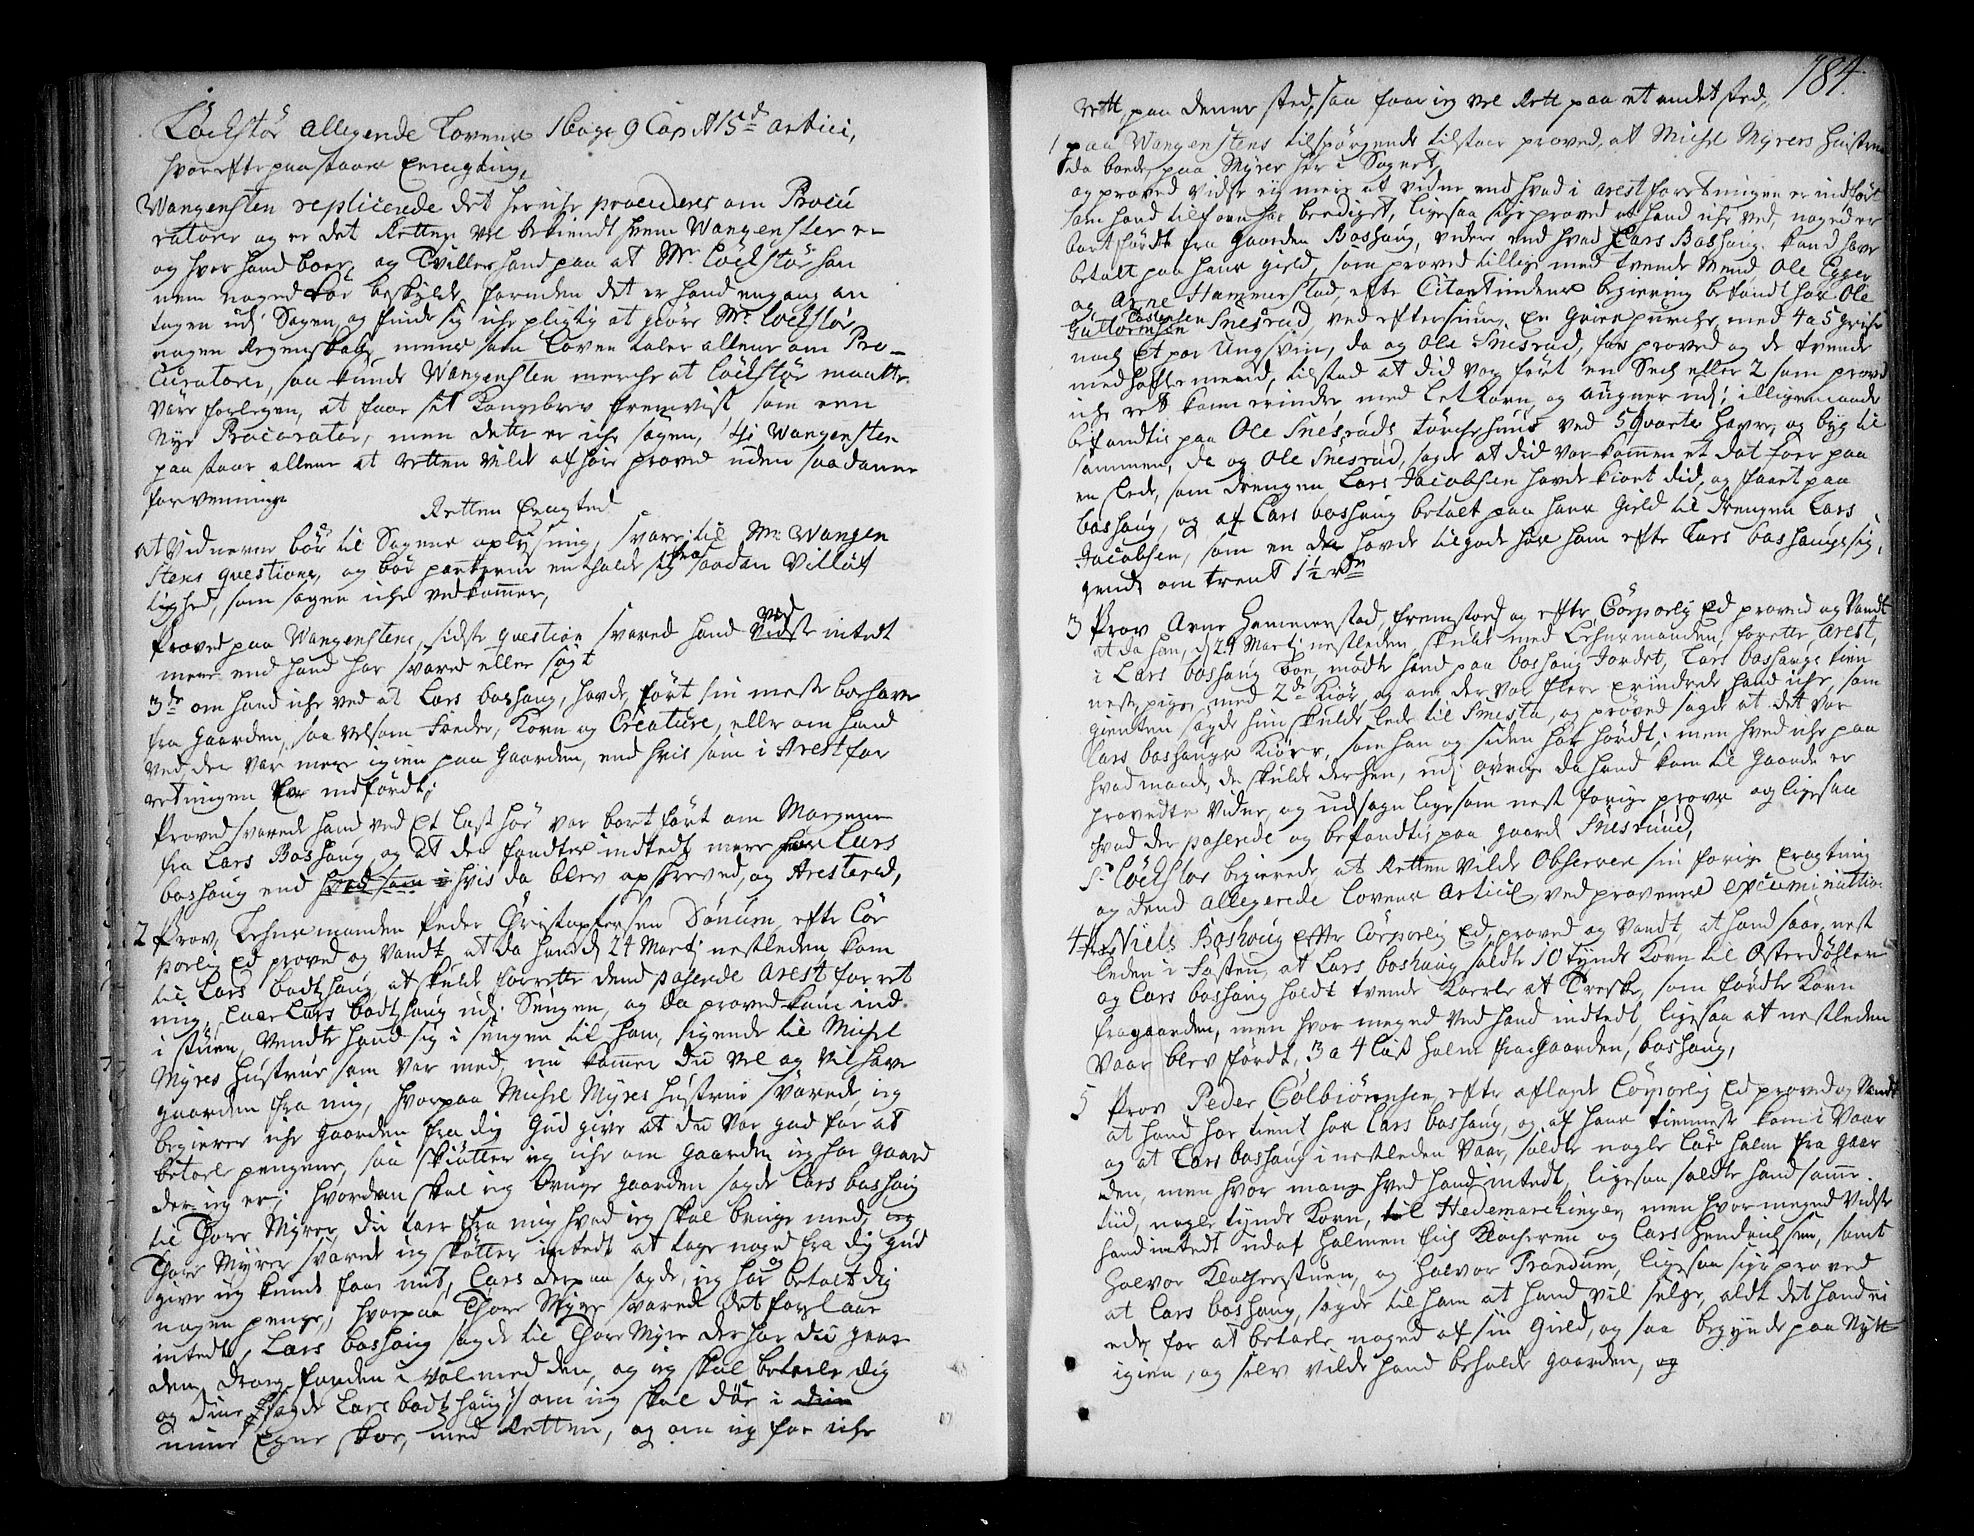 Lochstør allegerede Lovens 1 bogs 9 Cap: A 15de articl,
hvor efter paastaaer Eragtning,
Wangensten replicerede det her iche procederes om Procu
ratorer og er det Retten vel bekiendt hvem Wangensten er
og hvor hand boer, og tviller hand paa at Mr Lochstør han
nem noged bør beskylde, foruden det er hand engang an
tagen udj Sagen og finde sig iche pligtig at giøre Mr Lochstør
nogen Regenskab, mens som Loven taler allene om Pro-
curatorer, saa kunde Wangensten merche at Lochstør maatte
være forlegen, at faae sit Kongebrev fremvist som een
Nye Procurator, men dette er iche sagen, thi Wangensten
paastaar allene at retten vilde afhøre proved uden saadanne
forvenninge
Retten Eragted
at Vidnerne bør til Sagens oplysning, svare til Mr Wangen
stens questioner, og bør parterne entholde sig fra saadan Vitløf
tighed, som sagen iche vedkommer,
Proved paa Wangenstens sidste question svared hand ved intedt
mere end hand har svared eller sagt
3de om hand iche ved at Lars boshaug, havde ført sin meste boehave
fra gaarden, saa velsom Foeder, Korn og Creature, eller om hand
ved der var mere igien paa gaarden, end hvis som i Arestfor
retningen er indfördt,
Proved svarede hand ved Et lass høe var bort ført om Morgenen
fra Lars Boshaug, og at der fandtes indtedt mere hos Lars
boshaug end hvis da blev opskreved, og Aresterid,
2 Prov, Lehnsmanden Peder Christophersen Sønum, efter Cor
porlig Ed proved og Vandt, at da hand d 24 Martj nestleden kom
til Lars bodtshaug at skulde forrette dend paserede Arest forret
ning, laae Lars bodtshaug udj Sengen, og da proved kom ind
i stuen, Vendte hand sig i sengen til ham, sigende til Michel
Myres hustrue som var med, nu kommer du vel og vil have
gaarden fra mig, hvorpaa Michel Myres hustrue svarede, jeg
begierer iche gaarden fra dig Gud give at du var god for at
betale pengene, saa skiøtter jeg iche om gaarden jeg har gaard
der jeg er; hvordan skal jeg bruge gaarden sagde Lars boshaug
til Thore Myrer, du tar fra mig hvad jeg skal bruge med,
Thore Myrer svarede jeg skøtter intedt at tage noged fra dig Gud
give jeg kunde faae mit, Lars derpaa sagde, jeg har og betalt dig
nogen penge, hvorpaa Thore Myre svarede det forslaar
intedt, Lars boshaug sagde til Thore Myre der har du gaar
den, drag Fanden i Vol med den, og jeg skal betale dig
og dine sagde Lars bodtshaug, om jeg skal døe i
mine Egne skoe, med Retten, og om jeg faar iche
184.
rett, paa denne sted, saa faar jeg vel Rett paa et andet sted,
1 paa Wangenstens tilspørgende tilstaar proved, at Michel Myrers hustrue
da boede paa Myrer her i Sognet,
og proved vidste ej mere at vidne end hvad i arestforretningen er indført
som hand tilforn har beediget, ligesaa siger proved at hand iche ved, noged er
bort fördt fra gaarden Boshaug, videre end hvad Lars Boshaug kand have
betalt paa hans gield, som proved tillige med tvende Mend Ole Egger
og Arne Hammerstad, efter Citantindens begiering befandt hos Ole
Guttormsen Snesrud, ved eftersiun, En Griis purche med 4 a 5 grise
nock Et par Ungsvin, da og Ole Snesrud, for proved og de tvende
medhafte mend, tilstod at did var ført en Sech eller 2 som proved
iche rett kunne erindre med Letkorn og augner udj, i lligemaade
befandtis paa Ole Snesruds törchehuus ved 5 Quarter Havre, og byg til
sammen, da og Ole Snesrud, sagde at did var kommen et dot foer paa
en slede, som drengen Lars Jacobsen havde kiørt did, og faaet paa
boshaug, og af Lars boshaug betalt paa hans gield til drengen Lars
Jacobsen, som en deel havde tilgode hos ham efter Lars boshaugs sig
gende om trent 1½ rdr
3 Prov Arne Hammerstad, fremstod og efter Corporlig Ed proved og Vandt
at da han, d 24 Martj nestleden, skulde med Lehnsmanden forrette Arest,
i Lars boshaug boe, mødte hand paa boshaug Jordet, Lars boshaugs tien
neste pige med 2de Kiør, og om der var flere erindrede hand iche, som
gienten sagde hun skulde lede til Smesta, og proved sagde at det var
Lars boshaugs Kiører, som han og siden har hördt; men hved iche paa
hvad maade, de skulde derhen, udj øvrige da hand kom til gaarde er
provedts Vidner, og udsagn ligesom nest forige proves og ligesaa
hvad der paserede og befandtis paa gaard Snesruud,
Sr Lochstør begierede at Retten vilde Observere sin forige Eragtning
og dend allegerede Lovens Articl, ved provenes examination
4 Niels Boshaug efter Corporlig Ed, proved og Vandt, at hand saae nest
leden i Fasten, at Lars boshaug soldte 10 tynder Korn til Østerdøhler
og Lars boshaug holdt tvende Karle at Treske, som fördte Korn
fra gaarden, men hvor meged ved hand indtedt, ligesaa at nestleden
Vaar blev fördt, 3 a 4 las halm fra gaarden, boshaug,
5 Prov Peder Colbiörnsen, efter aflagde Corporlig Ed proved og Vandt
at hand har tient hos Lars boshaug, og af hans tienneste kom i Vaar
og at Lars boshaug i nestleden Vaar, soldte nogle las halm fra gaar
den, men hvor mange hved hand intedt, ligesaa soldte hand samme
tiid, nogle tynder Korn, til Hedemarchinger, men hvormeged vidste
hand intedt udaf halmen fich Klocheren og Lars Hendrichsen, samt
Halvor Klocherstuen, og Halvor Prandum, ligesaa siger proved
at Lars boshaug, sagde til ham at hand vil selge, aldt det hand ei
ede for at betale noged af sin gield, og saa begynde paa Nytt
igien, og selv vilde hand beholde gaarden,